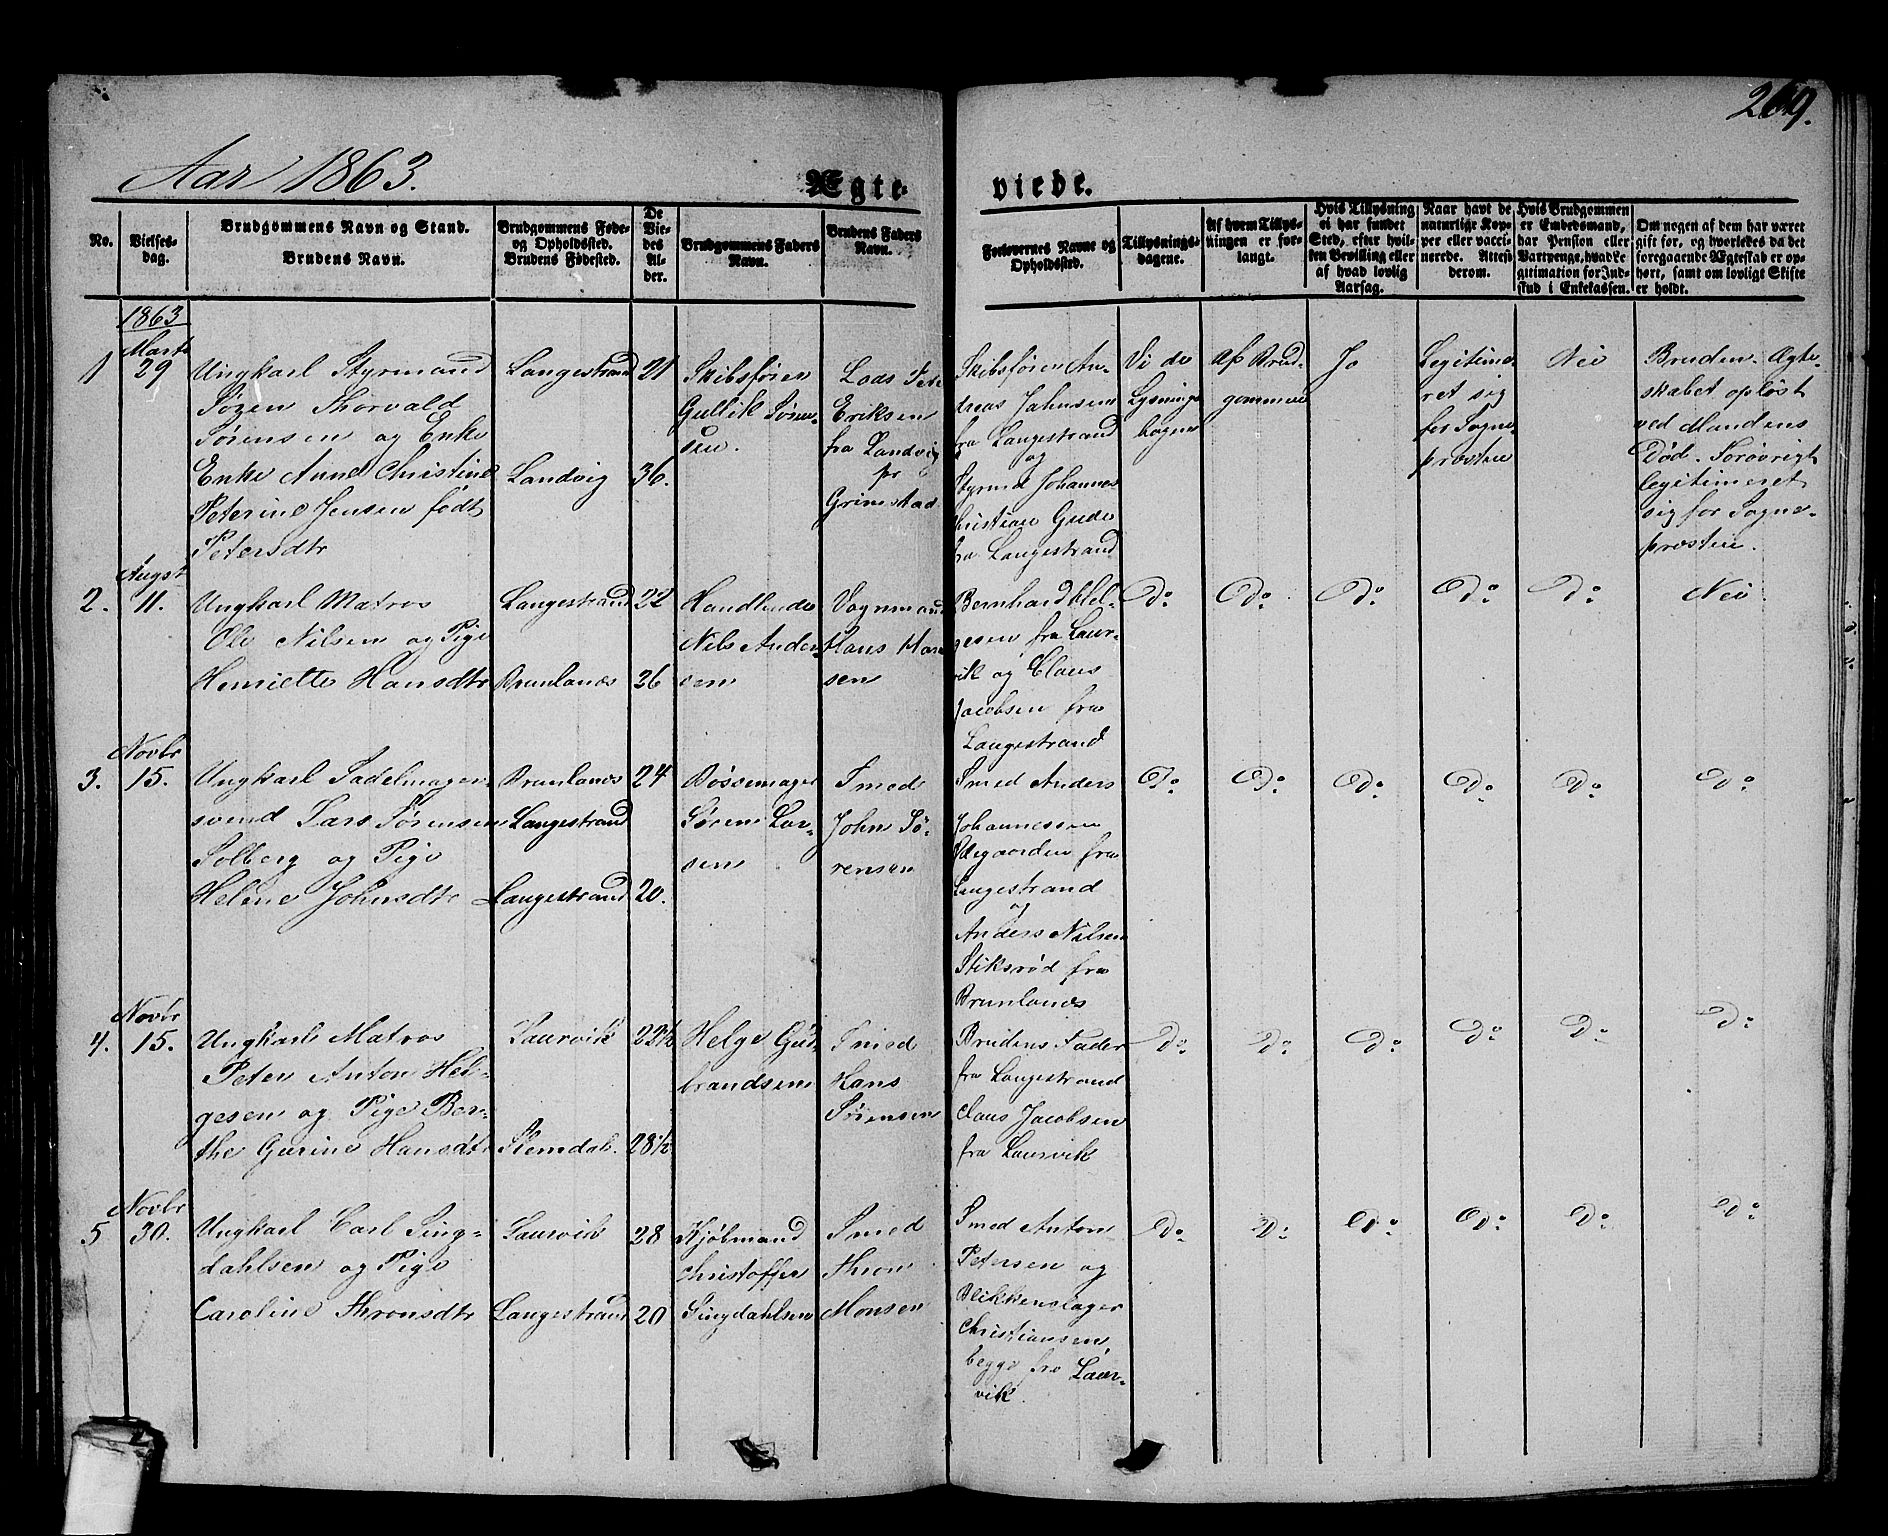 209.
Aar 1863.
Ægte-
viede.
No.
Vielses-
dag.
Brudgommens Navn og Stand.
Brudens Navn.
Brudgommens Føde-
og Opholdssted.
Brudens Fødested.
De
Vie-
des
Al-
der.
Brudgommens Faders
Navn.
Brudens Faders
Navn.
Forlovernes Navne og
Opholdssted.
Tillysnings-
dagene.
Af hvem Tillys-
ningen er for-
langt.
Hvis Tillysning
ei har fundet
Sted, efter hvil-
ken Bevilling eller
af hvad lovlig
Aarsag.
Naar havt de
naturlige Kop-
per eller vacci-
nerede. Attest
derom.
Hvis Brudgommen
er Embedsmand,
har Pension eller
Vartpenge, hvad Le-
gitimation for Ind-
skud i Enkekassen.
Om nogen af dem har været
gift før, og hvorledes da det
foregaaende Ægteskab er op-
hørt, samt om lovligt Skifte
er holdt.
1863
1
Marts
29
Ungkarl Styrmand
Jørgen Thorvald
Sørensen og Enke
Enke Anne Christine
Peterine Jensen født
Petersdtr
Langestrand
Landvig
21
36.
Skibsfører
Gullik Søren-
sen.
Lods Peter
Eriksen
fra Landvig
pr
Grimstad
Skibsfører An-
dreas Jahnsen
fra Langestrand
og
Styrmd Johannes
Christian Gude
fra Langestrand
Vi de
Lysnings
bogen
Af Brud-
gommen
Jo
Legitime-
ret sig
for Sogne-
præsten
Nei
Bruden. Ægte-
skabet opløst
ved Mandens
Død. Forøvrigt
legitimeret
sig for Sogne-
præsten.
2.
Augst
11.
Ungkarl Matros
Ole Nilsen og Pige
Henriette Hansdtr
Langestrand
Brunlanæs
22
26
Handlende
Nils Ander-
sen
Vognmand
Hans Han
sen
Bernhard Hel-
gesen fra Laur-
vik og Claus
Jacobsen fra
Langestrand
Do
Do
Do
Do
Do
Nei
3.
Novbr
15.
Ungkarl Sadelmager-
svend Lars Sørensen
Solberg og Pige
Helene Johnsdtr
Brunlanæs
Langestrand
Langestrand
24
20.
Bøssemager
Søren Lar-
sen
Smed
John Sø-
rensen
Smed Anders
Johannessen
Ødegaarden fra
Langestrand
og
Anders Nilsen
Stiksrød fra
Brunlanæs
Do
Do
Do
Do
Do
Do
4.
Novbr
15.
Ungkarl Matros
Peter Anton Hel-
gesen og Pige Ber-
the Gurine Hansdtr
Laurvik
Slemdal.
22½
28½
Helge Gud-
brandsen
Smed
Hans
Sørensen
Brudens Fader
fra Langestrand
Claus Jacobsen
fra Laurvik
Do
Do
Do
Do
Do
Do
5
Novbr
30.
Ungkarl Carl Sing-
dahlsen og Pige
Caroline Thronsdtr
Laurvik
Langestrand
28
20
Kjøbmand
Christoffer
Singdahlsen
Smed
Thron
Monsen
Smed Anton
Petersen og
Blikkenslager
Christiansen,
begge fra Laur-
vik.
Do
Do
Do
Do
Do
Do